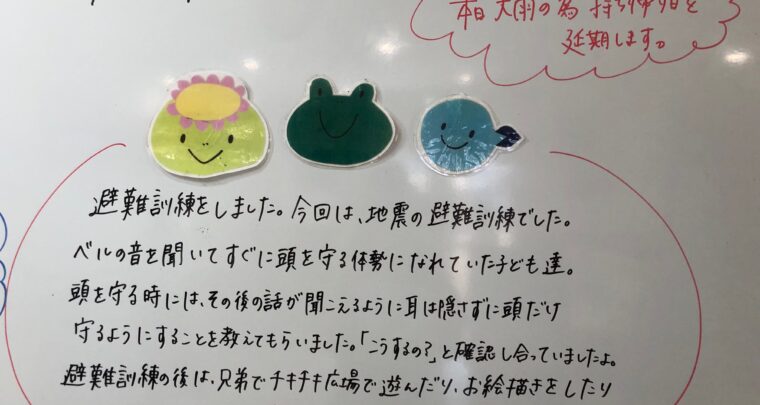 本日大雨の為 持ち帰りを
延期します。
避難訓練をしました。今回は、地震の避難訓練でした。
ベルの音を聞いてすぐに頭を守る体勢になれていた子ども達。
頭を守る時には、その後の話が聞こえるように耳は隠さずに頭だけ
守るようにすることを教えてもらいました。「こうするの?」と確認し合っていましたよ。
避難訓練の後は、兄弟でチキチキ広場で遊んだり、お絵描きをしたり